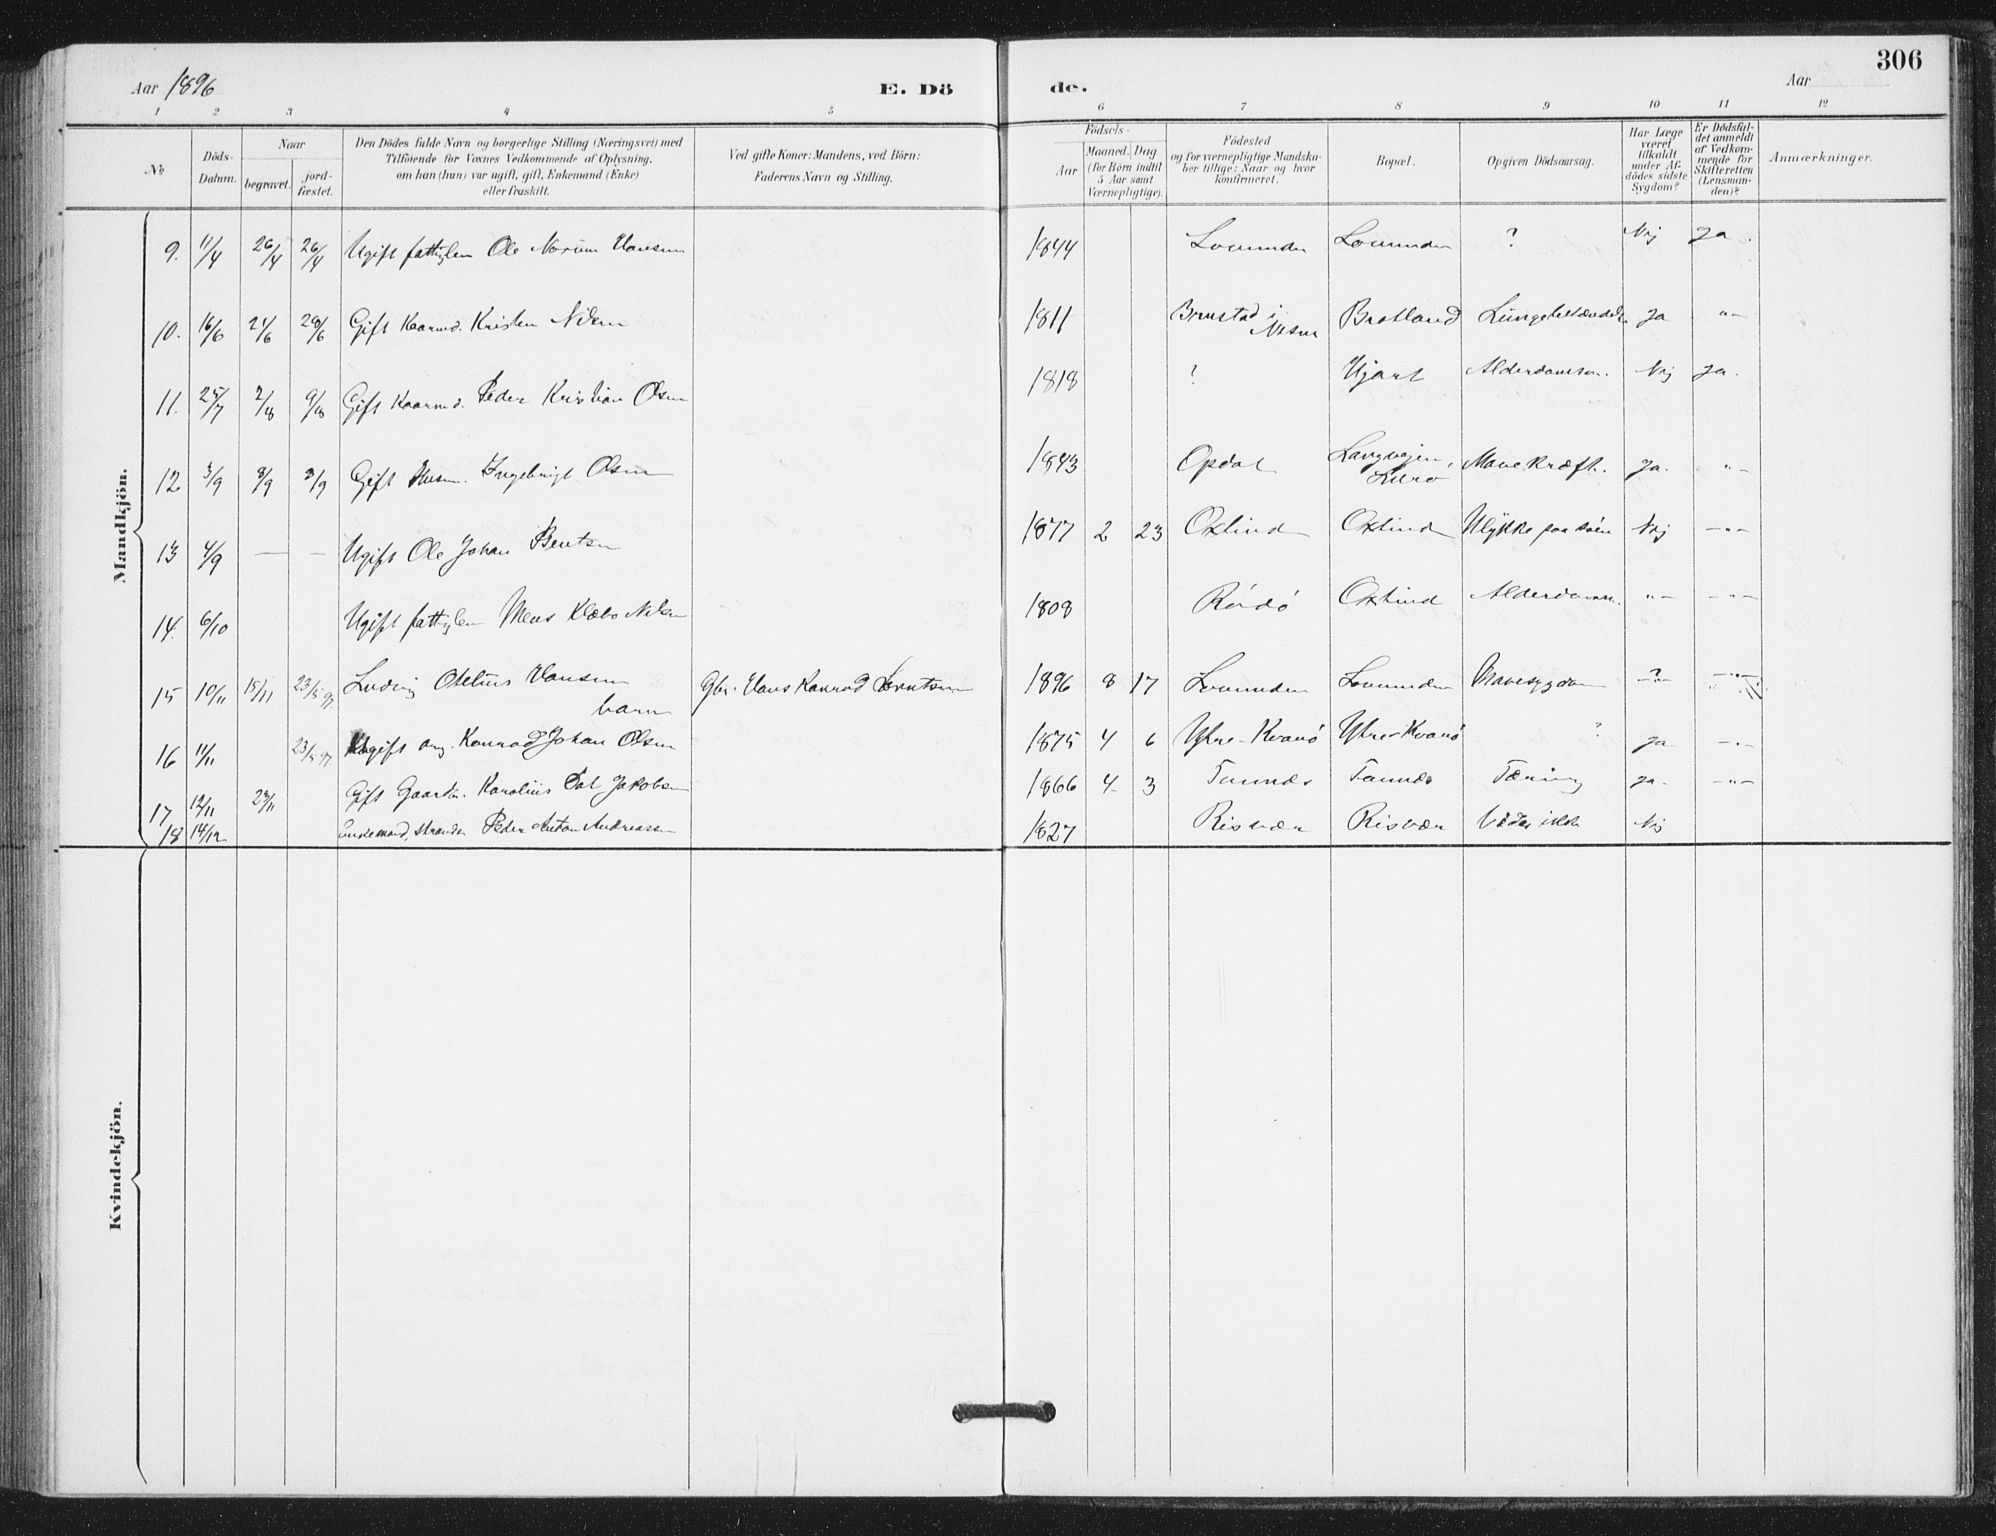 306
Aar 1896 E. Dö de. Aar
1 2 3 4 5 6 7 8 9 10 11 12
No. Döds-Datum. Naar begravet. jord-fæstet. Den Dödes fulde Navn og borgerlige Stilling (Næringsvei) med Tilföiende for Voxnes Vedkommende af Oplysning, om han (hun) var ugift, gift, Enkemand (Enke) eller fraskilt. Ved gifte Koner: Mandens, ved Börn: Faderens Navn og Stilling. Födsels- Aar Maaned. Dag (for Börn indtil 5 Aar samt Værnepligtige). Födested og for værnepligtige Mandskaber tillige: Naar og hvor konfirmeret. Bopæl. Opgiven Dödsaarsag. Har Læge været tilkaldt under Afdödes sidste Sygdom? Er Dödsfaldet anmeldt af Vedkommende for Skifteretten (Lensmanden)? Anmærkninger.
Mandkjön.
9. 11/4 26/4 26/4 Ugift fattiglem Ole Norum Hansen 1844 Lovunden Lovunden ? Nej Ja.
10. 16/6 21/6 28/6 Gift Kaarmd. Kristen Nilsen 1811 Brustad i Nesna Bratland Lungebetændelse Ja -"-
11. 25/7 2/8 9/8 Gift Kaarmd. Peder Kristian Olsen 1818 ? Hjart Alderdomssv. Nej Ja.
12 3/9 8/9 8/9 Gift Husm. Ingebrigt Olsen 1843 Opdal Langvejen, Lurö Mavekræft. Ja. -"-
13 4/9 — — Ugift Ole Johan Bentsen 1877 2 23 Oxtind Oxtind Ulykke paa söen Nej -"-
14. 6/10 Ugift fattiglem Mens Klæbo Nilsen 1808 Rödö Oxtind Alderdomssv. "- -"-
15 10/11 15/11 23/5 97. Ludvig Otelius Hansen barn Gbr. Hans Konrad Berntsen 1896 8 17 Lovunden Lovunden Mavesygdom -?- -"-
16 11/11 23/5 97. Ugift arb. Konrad Johan Olsen 1875 4 6 Ytre-Kvarö Ytre-Kvarö ? ja -"-
17 12/11 23/11 Gift Gaardbr. Karolius Dal Jakobsen 1866 4 3 Tonnes Tonnes Tæring ja. -"-
18 14/12 Enkemand, Strands. Peder Anton Andreassen 1827 Risvær Risvær Vides ikke Nej
Kvindekjön.